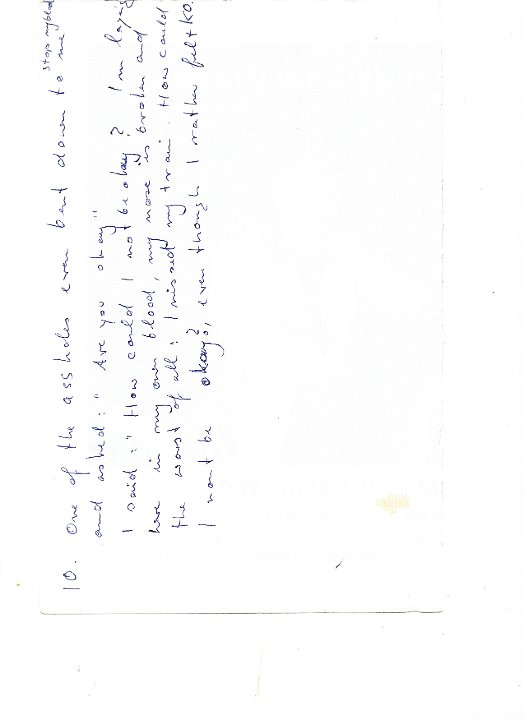 10. One of the assholes even bent down to me
and asked: "Are you okay"
I said: "How could I not be okay? I'm laying
here in my own blood, my nose is broken and
the worst of all: I missed my train. How could
I not be okay?, even though I rather felt KO.